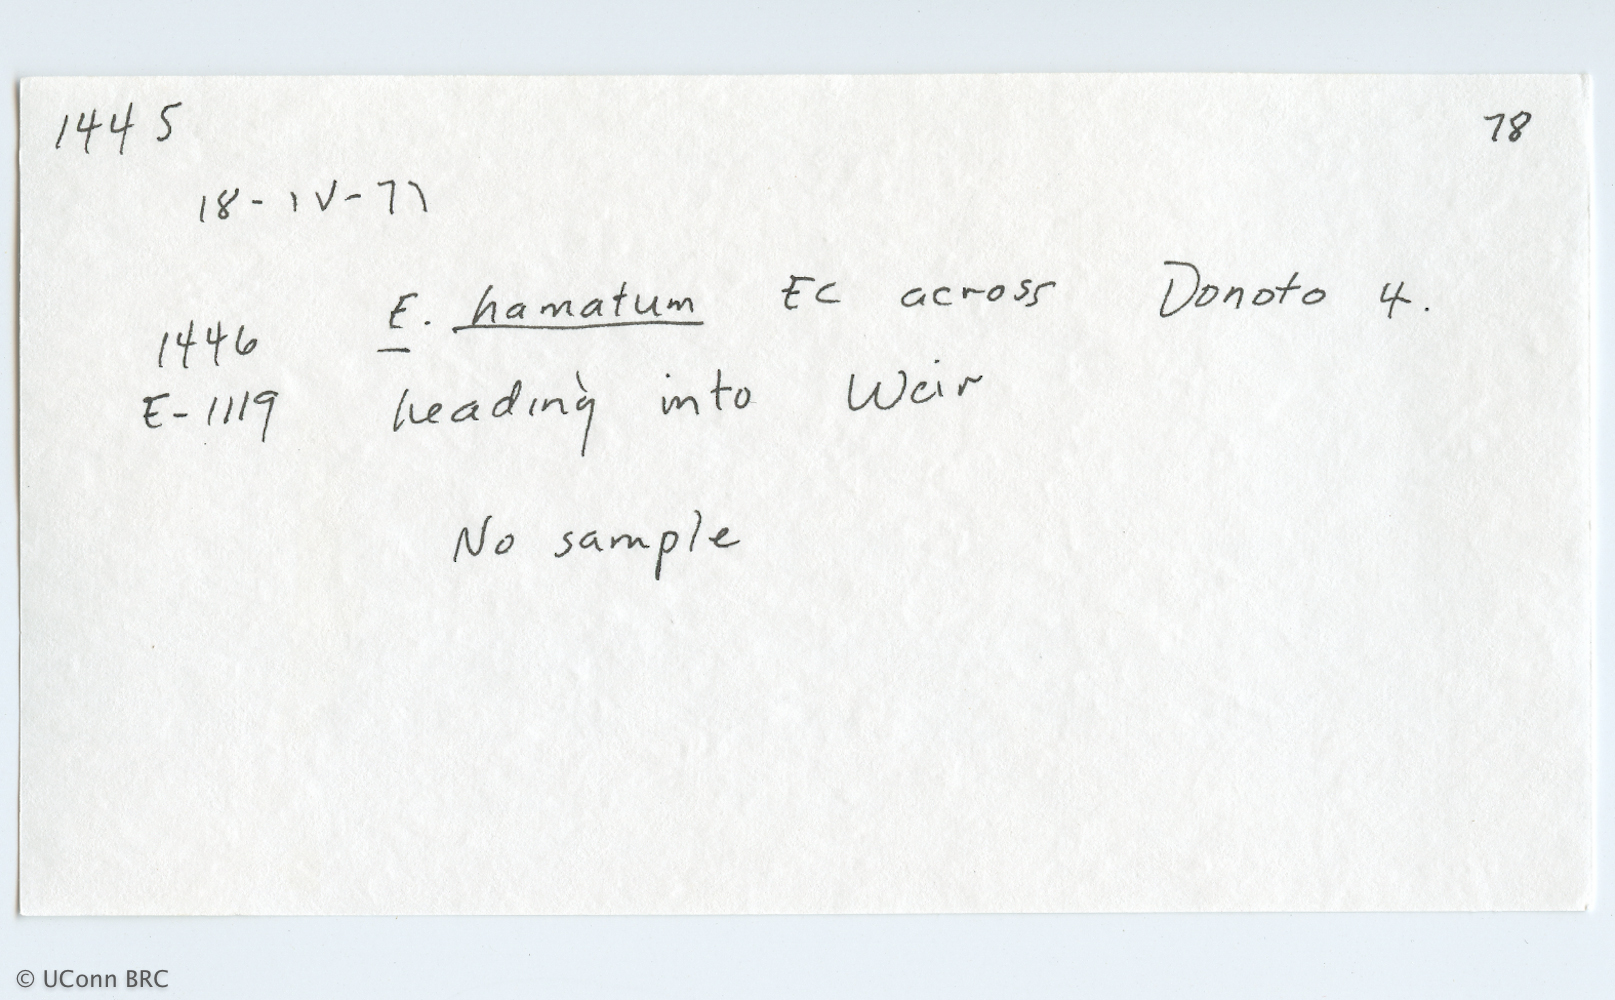 1445 78
18-IV-71
E. hamatum EC across Donoto 4.
1446
E-1119 heading into Weir
No sample
© UConn BRC